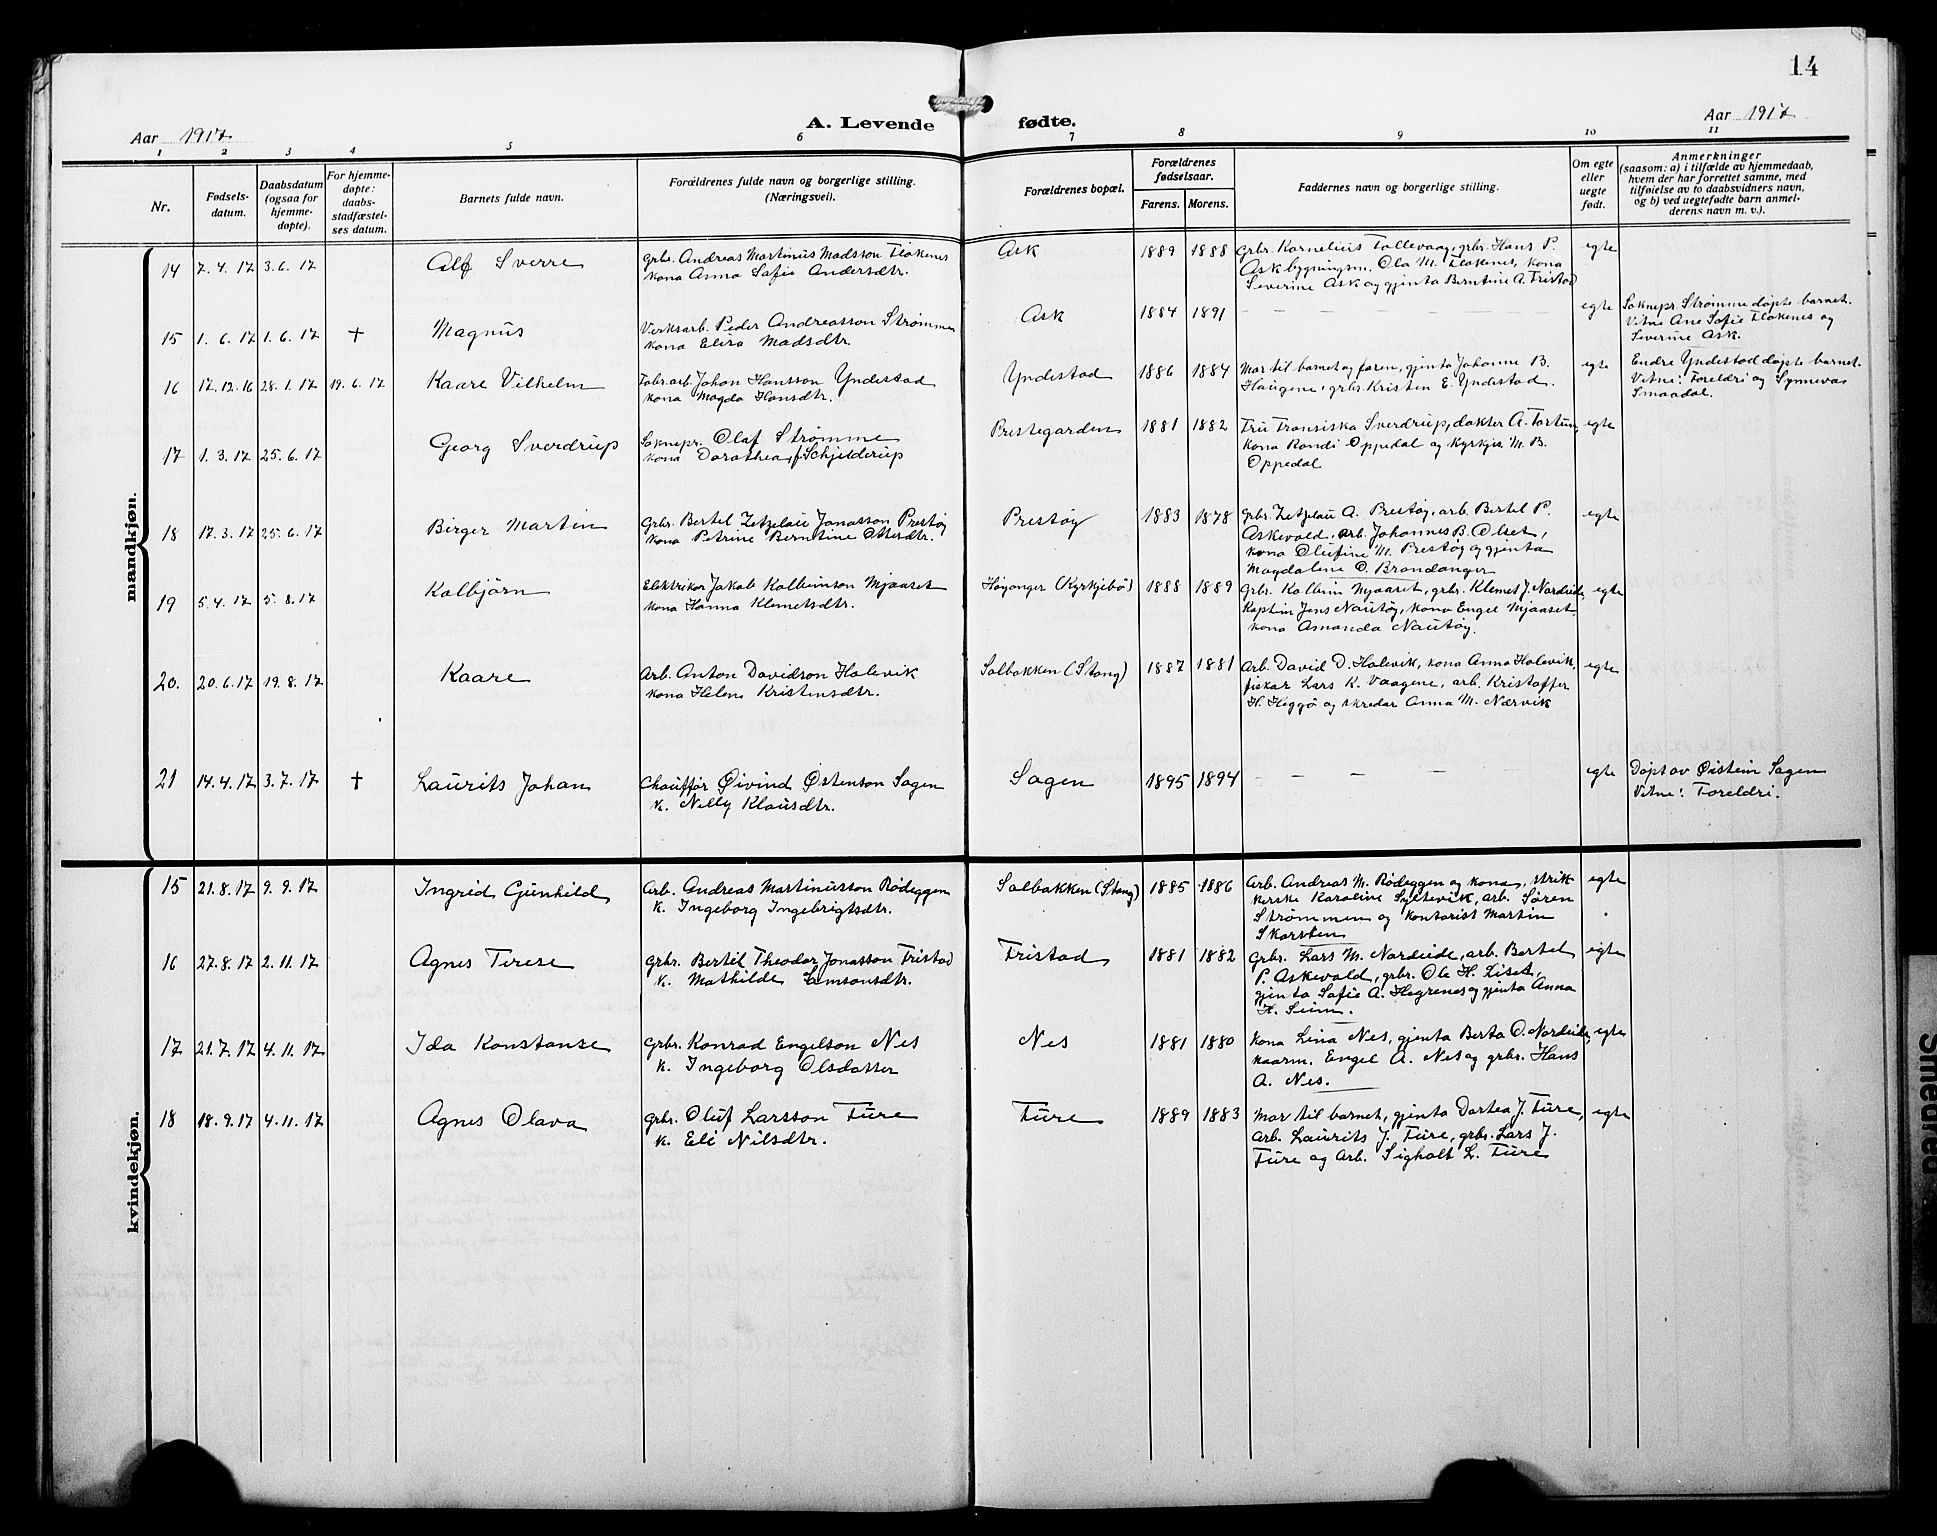 14
Aar 1917
A. Levende fødte.
Aar 1917
1 2 3 4 5 6 7 8 9 10 11
Nr.
Fødsels-
datum.
Daabsdatum
(ogsaa for
hjemme-
døpte).
For hjemme-
døpte:
daabs-
stadfæstel-
ses datum.
Barnets fulde navn.
Forældrenes fulde navn og borgerlige stilling.
(Næringsvei).
Forældrenes bopæl.
Forældrenes
fødselsaar.
Farens. Morens.
Faddernes navn og borgerlige stilling.
Om egte
eller
uegte
født.
Anmerkninger
(saasom: a) i tilfælde av hjemmedaab,
hvem der har forrettet samme, med
tilføielse av to daabsvidners navn,
og b) ved uegtefødte barn anmel-
derens navn m. v.).
mandkjøn.
14 7.4.17 3.6.17 Alf Sverre
grbr. Andreas Martinus Madsson Flokenes
kona Anna Sofie Andersdtr.
Ask 1889 1888
grbr. Kornelius Tallevaag, grbr. Hans P.
Ask bygningsm. Ola M. Flokenes, kona
Severine Ask og gjenta Berntine A. Fristad
egte
15 1.6.17 1.6.17 † Magnus
Verksarb. Peder Andreasson Strømmen
kona Elira Madsdtr.
Ask 1884 1891 – – – – – egte
Soknepr. Strømme døpte barnet.
Vitne Ane Sofie Flokenes og
Severine Ask.
16 17.12.16 28.1.17 19.6.17 Kaare Vilhelm
Fabr.arb. Johan Hansson Yndestad
kona Magda Hansdtr.
Yndestad 1886 1884
Mor til barnet og faren, gjenta Johanne B.
Haugene, grbr. Kristen E. Yndestad.
egte
Endre Yndestad døpte barnet.
Vitne: Foreldri og Synneva
Smaadal.
17 1.3.17 25.6.17 Georg Sverdrup
Soknepr. Olaf Strømme
kona Dorothea f. Schjelderup
Prestegarden 1881 1882
Fru Fransiska Sverdrup, dokter A. Fortun,
kona Randi Oppedal og Kyrkjes. M. B.
Oppedal
egte
18 17.3.17 25.6.17 Birger Martin
Grbr. Bertel Zetzelau Jonasson Prestøy
kona Petrine Berntine Ottersdtr.
Prestøy 1883 1878
grbr. Zetzlau A. Prestøy, arb. Bertel P.
Askevold, arb. Johannes B. Olset,
kona Olufine M. Prestøy og gjenta
Magdaline O. Brandanger
egte
19 5.4.17 5.8.17 Kolbjørn
Elektrikar Jakob Kolbeinson Mjaaset
kona Hanna Klemetsdtr.
Høyanger (Kyrkjebø) 1888 1889
Grbr. Kolbein Mjaaset, grbr. Klemet J. Nordeide,
Kaptin Jens Nautøy, kona Engel Mjaaset
kona Amanda Nautøy.
egte
20. 20.6.17 19.8.17 Kaare
Arb. Anton Davidson Halevik
kona Helene Kristensdtr.
Solbakken (Stang) 1887 1881
Arb. David D. Halevik, kona Anna Halevik,
fiskar Lars K. Vaagene, arb. Kristoffer
H. Heggø og skredar Anna M. Nærvik
egte
21 14.4.17 3.7.17 † Laurits Johan
Chauffør Øivind Østenson Sagen
k. Nelly Klausdtr.
Sagen 1895 1894 – – – – egte
Døpt av Øistein Sagen
Vitne: Foreldri.
kvindekjøn.
15 21.8.17 9.9.17 Ingrid Gunhild
Arb. Andreas Martinusson Rødeggen
k. Ingeborg Ingebrigtsdtr.
Solbakken (Stang) 1885 1886
Arb. Andreas M. Rødeggen og kona, strik
kerske Karoline Syltevik, arb. Søren
Strømmen og kontorist Martin
Skorsten
egte
16 27.8.17 2.11.17 Agnes Terese
grbr. Bertel Theodor Jonasson Fristad
k. Mathilde Samsonsdtr.
Fristad 1881 1882
grbr. Lars M. Nordeide, arb. Bertel
P. Askevold, grbr. Ole H. Liset,
gjenta Sofie A. Hegrenes og gjenta Anna
H. Seim.
egte
17 21.7.17 4.11.17 Ida Konstanse
grbr. Konrad Engelson Nes
k. Ingeborg Olsdatter
Nes 1881 1880
kona Lina Nes, gjenta Berta O. Nordeide,
kaarm. Engel A. Nes og grbr. Hans
A. Nes.
egte
18 18.9.17 4.11.17 Agnes Olava
grbr. Oluf Larsson Fure
k. Eli Nilsdtr.
Fure 1889 1883
Mor til barnet, gjenta Dortea J. Fure,
Arb. Laurits J. Fure, grbr. Lars J.
Fure og Arb. Sigholt L. Fure
egte